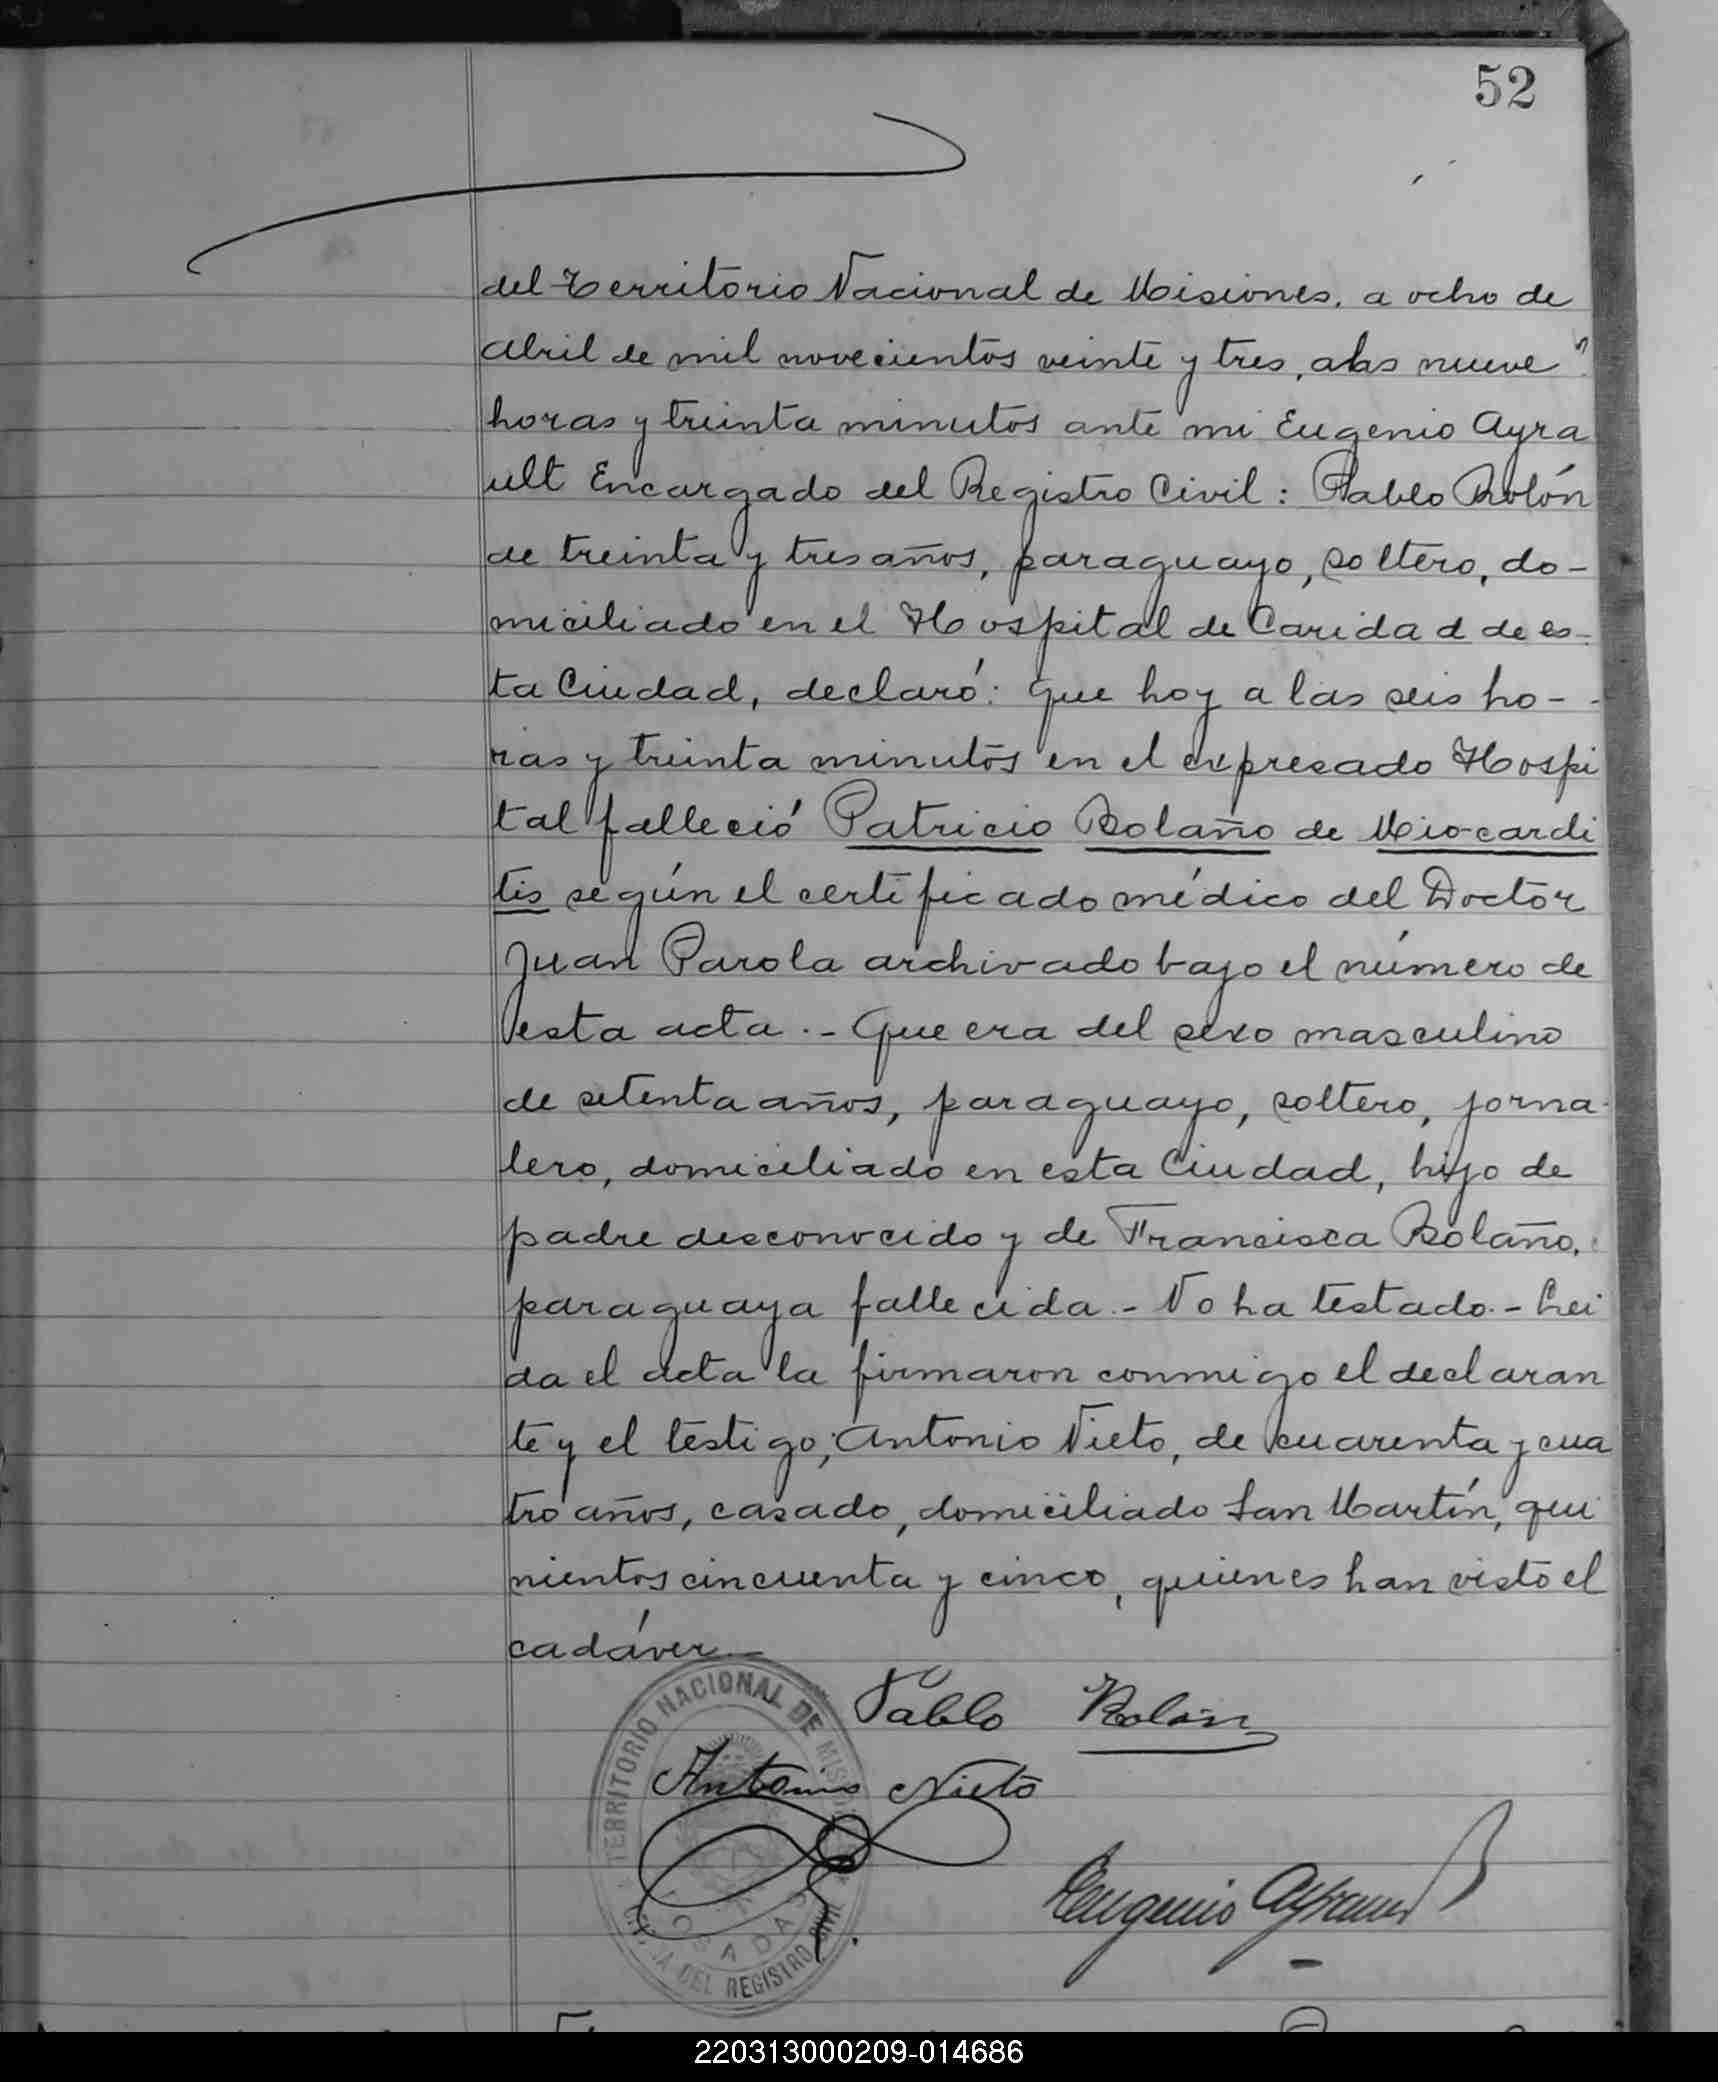 52
del Territorio Nacional de Misiones, a ocho de
abril de mil novecientos veinte y tres, a las nueve
horas y treinta minutos ante mi Eugenio Ayra
ult Encargado del Registro Civil: Pablo Rolón
de treinta y tres años, paraguayo, soltero, do-
miciliado en el Hospital de Caridad de es-
ta Ciudad, declaró: Que hoy a las seis ho-
ras y treinta minutos en el expresado Hospi
tal falleció Patricio Bolaño de Miocardi
tis según el certificado médico del Doctor
Juan Parola archivado bajo el número de
esta acta.- Que era del sexo masculino
de setenta años, paraguayo, soltero, jorna-
lero, domiciliado en esta Ciudad, hijo de
padre desconocido y de Francisca Bolaño,
paraguaya fallecida.- No ha testado.- Lei
da el acta la firmaron conmigo el declaran
te y el testigo; Antonio Nieto, de cuarenta y cua
tro años, casado, domiciliado San Martín, qui
nientos cincuenta y cinco, quienes han visto el
cadáver.-
Pablo Rolón
Antonio Nieto
Eugenio Ayrault
TERRITORIO NACIONAL DE MISIONES
POSADAS
DEL REGISTRO CIVIL
220313000209-014686